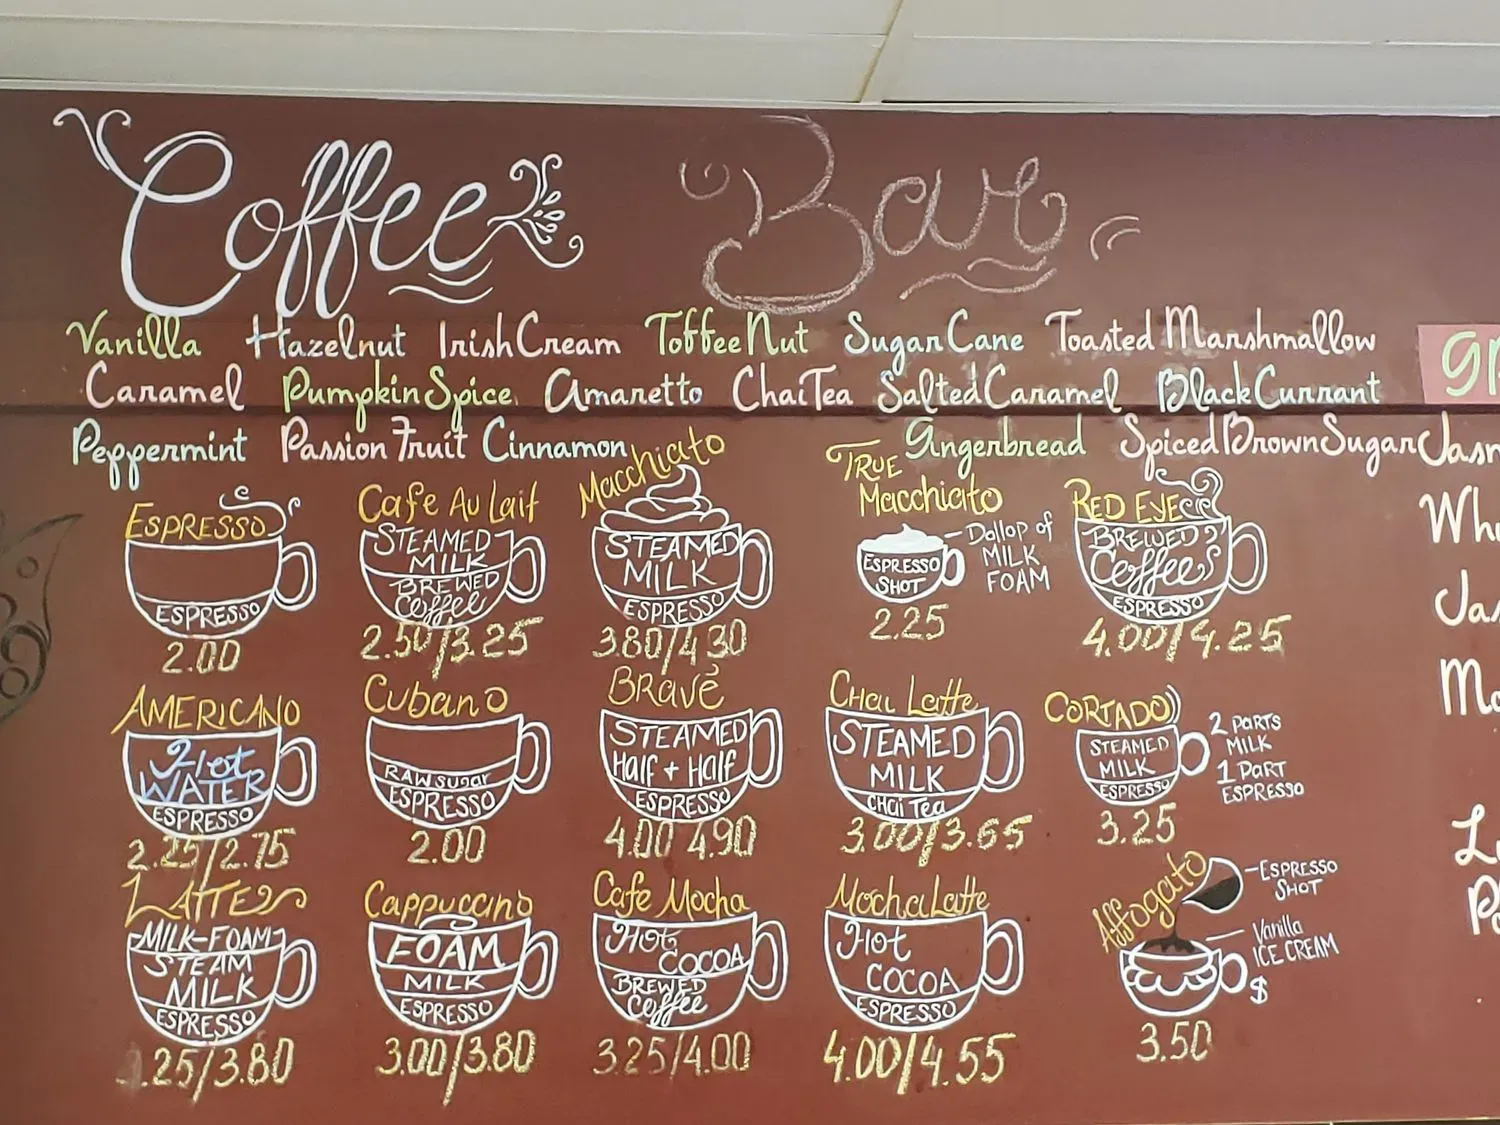 Coffee Bar
Vanilla Hazelnut Irish Cream Toffee Nut Sugar Cane Toasted Marshmallow
Caramel Pumpkin Spice Amaretto Chai Tea Salted Caramel Black Currant
Peppermint Passion Fruit Cinnamon Gngerbread Spiced Brown Sugar
ESPRESSO
ESPRESSO
2.00
Cafe Au Lait
STEAMED
MILK
BREWED
Coffee
2.50/3.25
Macchiato
STEAMED
MILK
ESPRESSO
3.80/4.30
TRUE
Macchiato
ESPRESSO
SHOT
Dollop of
MILK
FOAM
2.25
RED EYE
BREWED
Coffee
ESPRESSO
4.00/4.25
AMERICANO
Hot
WATER
ESPRESSO
2.25/2.75
Cubano
RAW sugar
ESPRESSO
2.00
BRAVÉ
STEAMED
Half + Half
ESPRESSO
4.00 4.90
Chai Latte
STEAMED
MILK
CHai Tea
3.00/3.65
CORTADO
STEAMED
MILK
ESPRESSO
2 PARTS
MILK
1 PART
ESPRESSO
3.25
LATTE
MILK-FOAM
STEAM
MILK
ESPRESSO
.25/3.80
Cappuccino
FOAM
MILK
ESPRESSO
3.00/3.80
Cafe Mocha
Hot
COCOA
BREWED
Coffee
3.25/4.00
Mocha Latte
Hot
COCOA
ESPRESSO
4.00/4.55
Affogato
ESPRESSO
SHOT
Vanilla
ICE CREAM
$
3.50